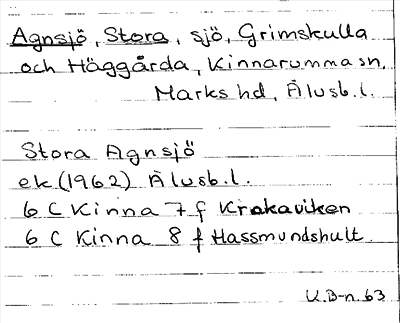 Agnsjö, Stora, sjö, Grimskulla
och Häggårda, Kinnarumma sn,
Marks hd, Älvsb. l.
Stora Agnsjö
ek (1962) Älvsb. l.
6 C Kinna 7 f Krokaviken
6 C Kinna 8 f Hassmundshult.
U.B-n. 63